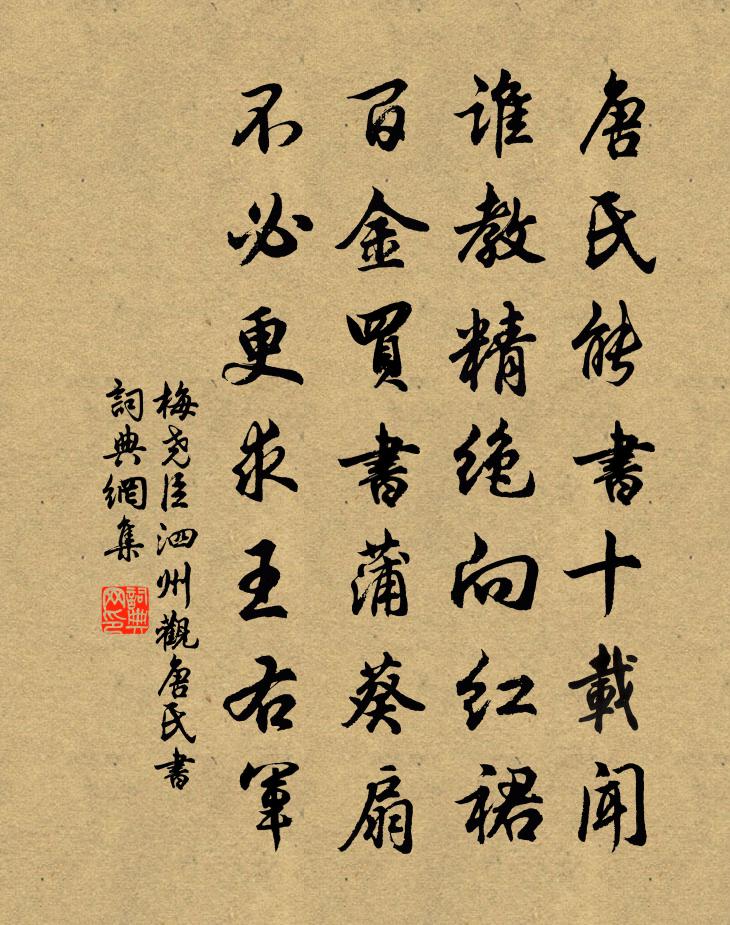 唐氏能書十載聞
誰教精絕向紅裙
百金買書蒲葵扇
不必更求王右軍
梅堯臣泗州觀唐氏書
詞典網集
詞典
网印